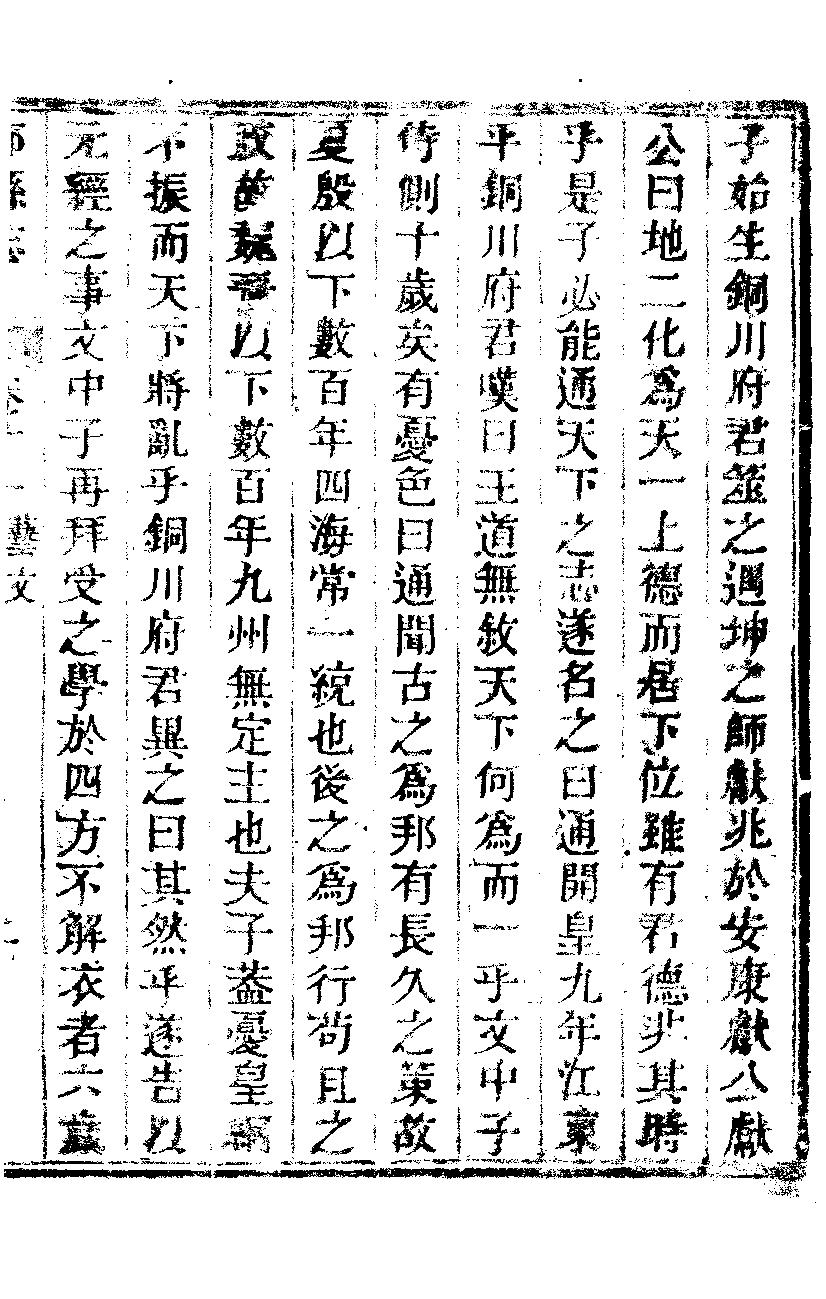 子始生銅川府君筮之遇坤之師獻兆於安康獻公獻
公曰地二化爲天一上德而居下位雖有君德非其時
乎是子必能通天下之志遂名之曰通開皇九年江東
平銅川府君嘆曰王道無敘天下何爲而一乎文中子
侍側十歲矣有憂色曰通聞古之爲邦有長久之策故
夏殷以下數百年四海常一統也後之爲邦行苟且之
政故魏晉以下數百年九州無定主也夫子蓋憂皇綱
不振而天下將亂乎銅川府君異之曰其然乎遂告以
元經之事文中子再拜受之學於四方不解衣者六歲
縣志 卷十一 藝文